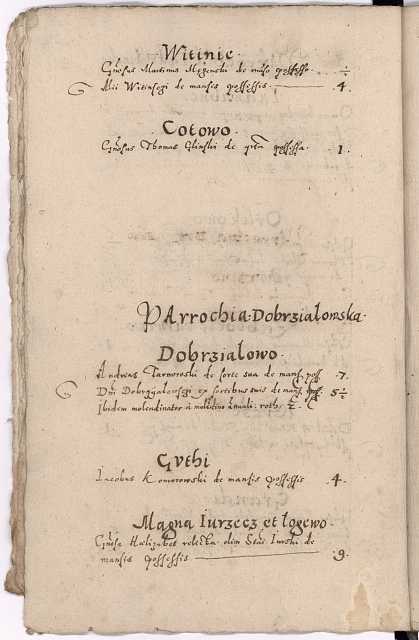 Witinie
Gnosus Martinus Mężenski de manso possesso ½
Alii Witinscy de mansis possessis 4.
Cotowo.
Gnosus Thomas Glinski de possessa 1.
PArrochia Dobrzialowska
Dobrzialowo.
Andreas Tarnowski de sorte sua de mans. poss. 7.
Dni Dobrzyalowsczy ex sortibus suis de mans. poss. 5½
Ibidem molendinator a molendino annuali: roth. ½.
Guthi
Jacobus Komorowski de mansis possessis 4.
Magna Iurzecz et logewo
Gnosa Helizabet relicta olim Stan. Iurski de
mansis possessis 9.